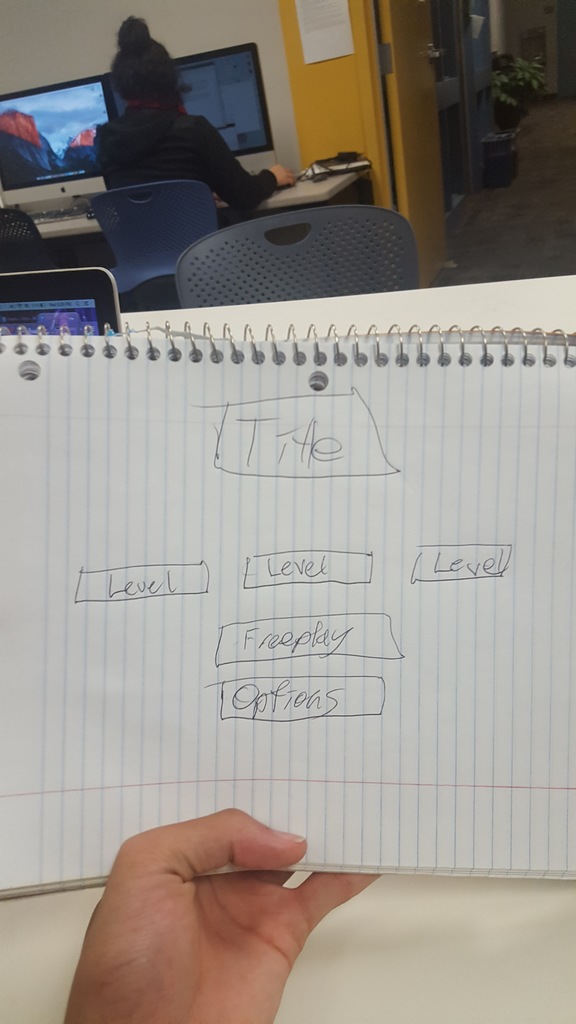 Title
Level Level Level
Freeplay
Options